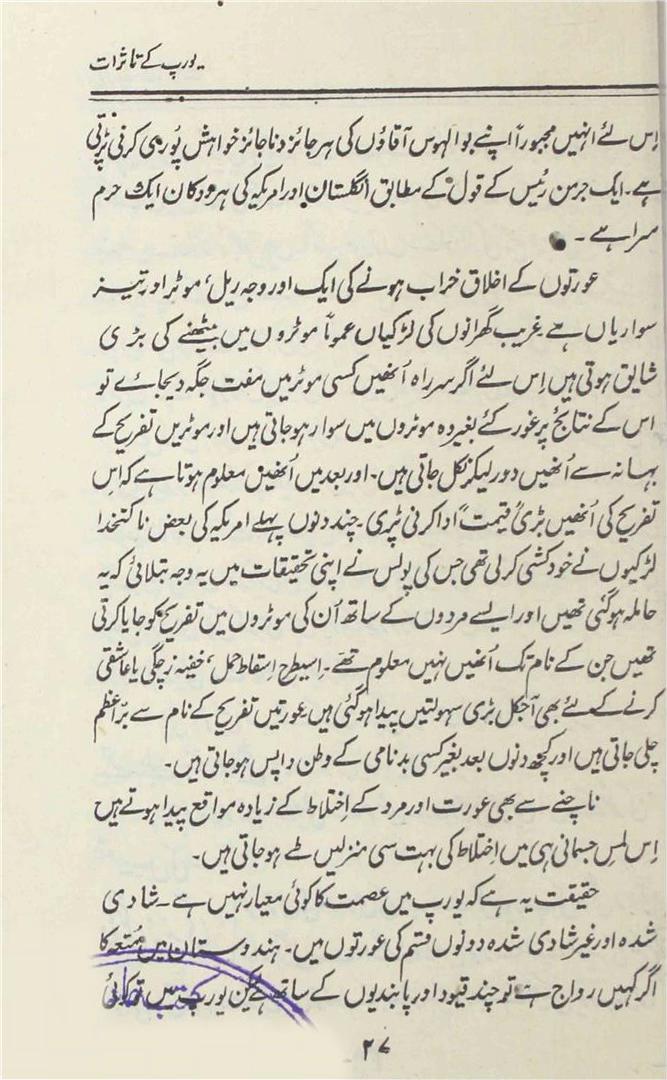 یورپ کے تاثرات
اِس لئے انہیں مجبوراً اپنے بوالہوس آقاؤں کی ہر جائز و ناجائز خواہش پُوری کرنی پڑتی
ہے۔ ایک جرمن رئیس کے قول کے مطابق انگلستان اور امریکہ کی ہر دوکان ایک حرم
سرا ہے ۔
عورتوں کے اخلاق خراب ہونے کی ایک اور وجہ ریل، موٹر اور تیز
سواریاں ہے غریب گھرانوں کی لڑکیاں عموماً موٹروں میں بیٹھنے کی بڑی
شایق ہوتی ہیں اِس لئے اگر سرراہ اُنھیں کسی موٹر میں مفت جگہ دیجائے تو
اس کے نتائج پر غور کئے بغیر وہ موٹروں میں سوار ہوجاتی ہیں اور موٹریں تفریح کے
بہانہ سے اُنھیں دور لیکر نکل جاتی ہیں۔ اور بعد میں اُنھیں معلوم ہوتا ہے کہ اِس
تفریح کی اُنھیں بڑی قیمت ادا کرنی پڑی۔ چند دنوں پہلے امریکہ کی بعض ناکتخدا
لڑکیوں نے خودکشی کرلی تھی جس کی پولس نے اپنی تحقیقات میں یہ وجہ بتلائی کہ یہ
حاملہ ہوگئی تھیں اور ایسے مردوں کے ساتھ اُن کی موٹروں میں تفریح کو جایا کرتی
تھیں جن کے نام تک اُنھیں نہیں معلوم تھے۔ اِسیطرح اِسقاط حمل، خفیہ زچگی یا عاشقی
کرنے کے لئے بھی آجکل بڑی سہولتیں پیدا ہوگئی ہیں عورتیں تفریح کے نام سے برّاعظم
چلی جاتی ہیں اور کچھ دنوں بعد بغیر کسی بدنامی کے وطن واپس ہوجاتی ہیں۔
ناچنے سے بھی عورت اور مرد کے اِختلاط کے زیادہ مواقع پیدا ہوتے ہیں
اِس لمسِ جسمانی ہی میں اِختلاط کی بہت سی منزلیں طے ہوجاتی ہیں۔
حقیقت یہ ہے کہ یورپ میں عصمت کا کوئی معیار نہیں ہے۔ شادی
شدہ اور غیر شادی شدہ دونوں قسم کی عورتوں میں۔ ہندوستان میں مُتعہ کا
اگر کہیں رواج ہے تو چند قیود اور پابندیوں کے ساتھ ہے لیکن یورپ میں تو کوئی
۲۷